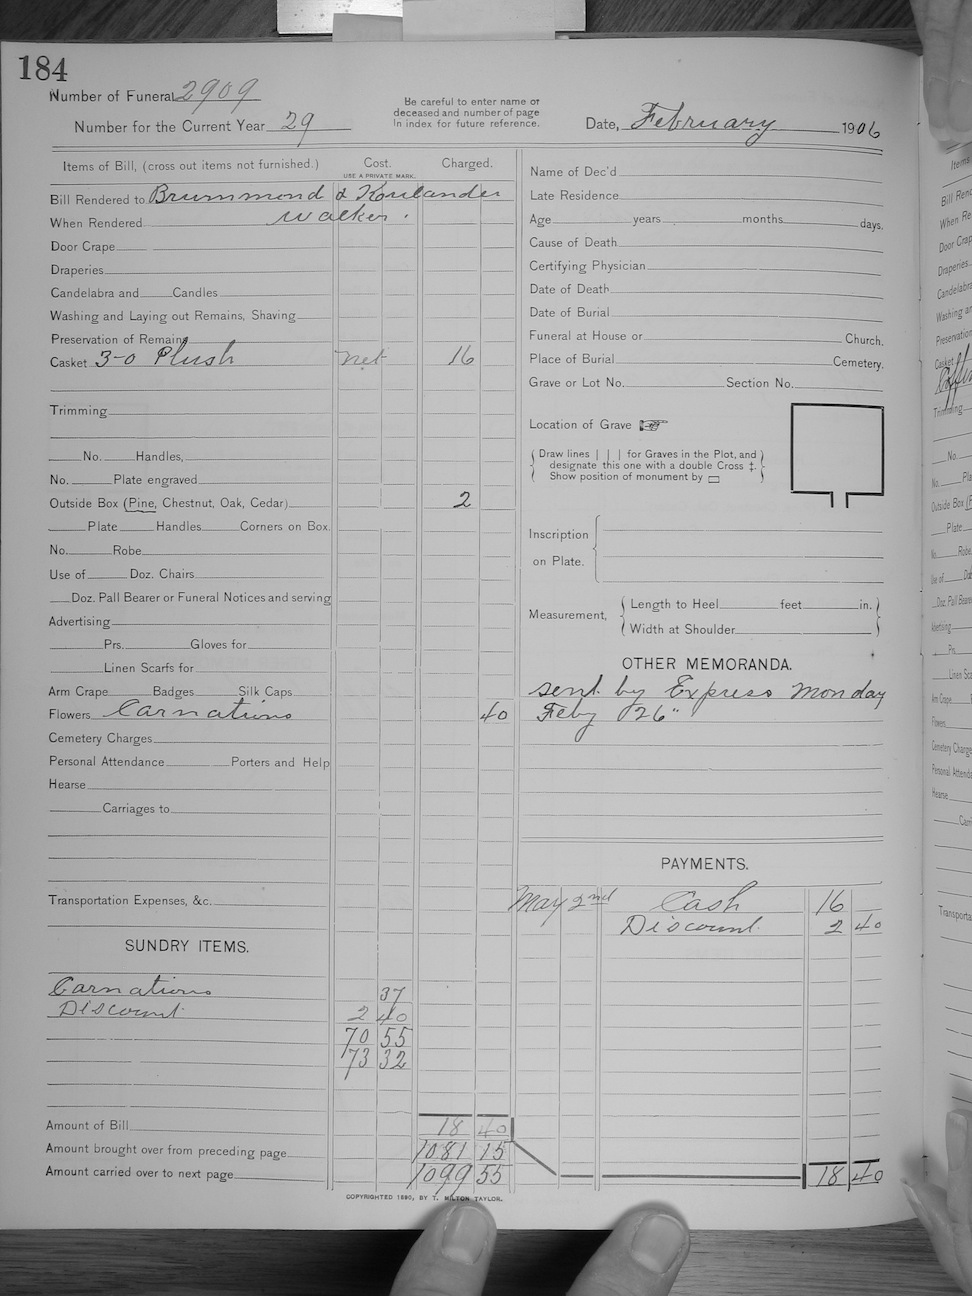 184
Number of Funeral 2909
Number for the Current Year 29
Be careful to enter name of
deceased and number of page
in index for future reference.
Date, February 1906
Items of Bill, (cross out items not furnished.) Cost. Charged.
USE A PRIVATE MARK.
Bill Rendered to Brummond &
When Rendered Walker.
Door Crape
Draperies
Candelabra and Candles
Washing and Laying out Remains, Shaving
Preservation of Remains
Casket 3-0 Plush net 16
Trimming
No. Handles,
No. Plate engraved
Outside Box (Pine, Chestnut, Oak, Cedar) 2
Plate Handles Corners on Box.
No. Robe
Use of Doz. Chairs
Doz. Pall Bearer or Funeral Notices and serving
Advertising
Prs. Gloves for
Linen Scarfs for
Arm Crape Badges Silk Caps
Flowers Carnations 40
Cemetery Charges
Personal Attendance Porters and Help
Hearse
Carriages to
Transportation Expenses, &c.
SUNDRY ITEMS.
Carnations 37
Discount 2 40
70 55
73 32
Amount of Bill 18 40
Amount brought over from preceding page 1081 15
Amount carried over to next page 1099 55
Name of Dec'd
Late Residence
Age years months days.
Cause of Death
Certifying Physician
Date of Death
Date of Burial
Funeral at House or Church.
Place of Burial Cemetery.
Grave or Lot No. Section No.
Location of Grave
Draw lines | | | for Graves in the Plot, and
designate this one with a double Cross ‡.
Show position of monument by ▭
Inscription
on Plate.
Measurement, Length to Heel feet in.
Width at Shoulder
OTHER MEMORANDA.
sent by Express Monday
Feby 26"
PAYMENTS.
May 2nd Cash 16
Discount 2 40
18 40
COPYRIGHTED 1890, BY T. MILTON TAYLOR.